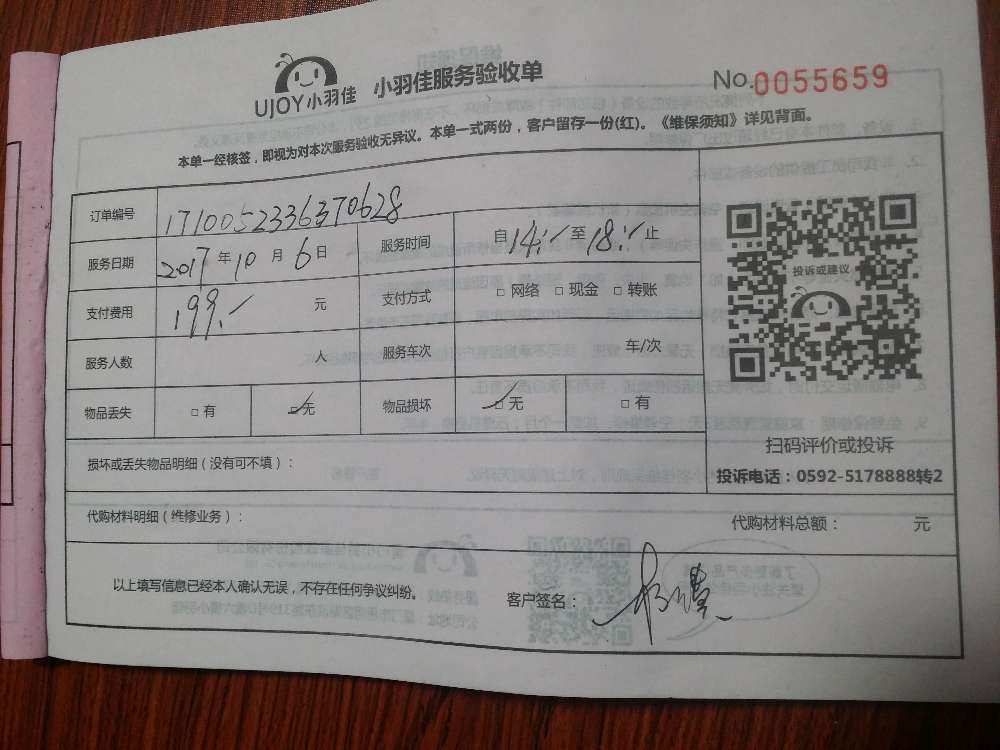 UJOY小羽佳 小羽佳服务验收单 No.0055659
本单一经核签，即视为对本次服务验收无异议。本单一式两份，客户留存一份(红)。《维保须知》详见背面。
订单编号 1710052336370628
服务日期 2017年10月6日 服务时间 自14:至18:止
支付费用 199.元 支付方式 □网络 □现金 □转账
服务人数 人 服务车次 车/次
物品丢失 □有 ☑无 物品损坏 ☑无 □有
投诉或建议
扫码评价或投诉
投诉电话：0592-5178888转2
损坏或丢失物品明细（没有可不填）：
代购材料明细（维修业务）： 代购材料总额： 元
以上填写信息已经本人确认无误，不存在任何争议纠纷。 客户签名：